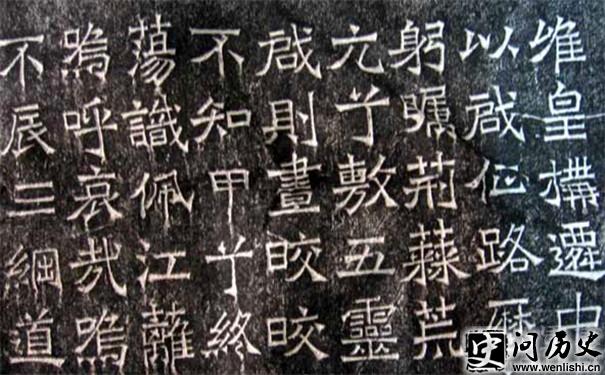 惟皇搆遷中
以啟位路歷
躬矚荊蕀荒
亢兮敷五靈
啟則晝皎皎
不知甲兮終
蕩識佩江蘺
嗚呼哀哉嗚
不辰三綱道
问历史
www.wenlishi.cn